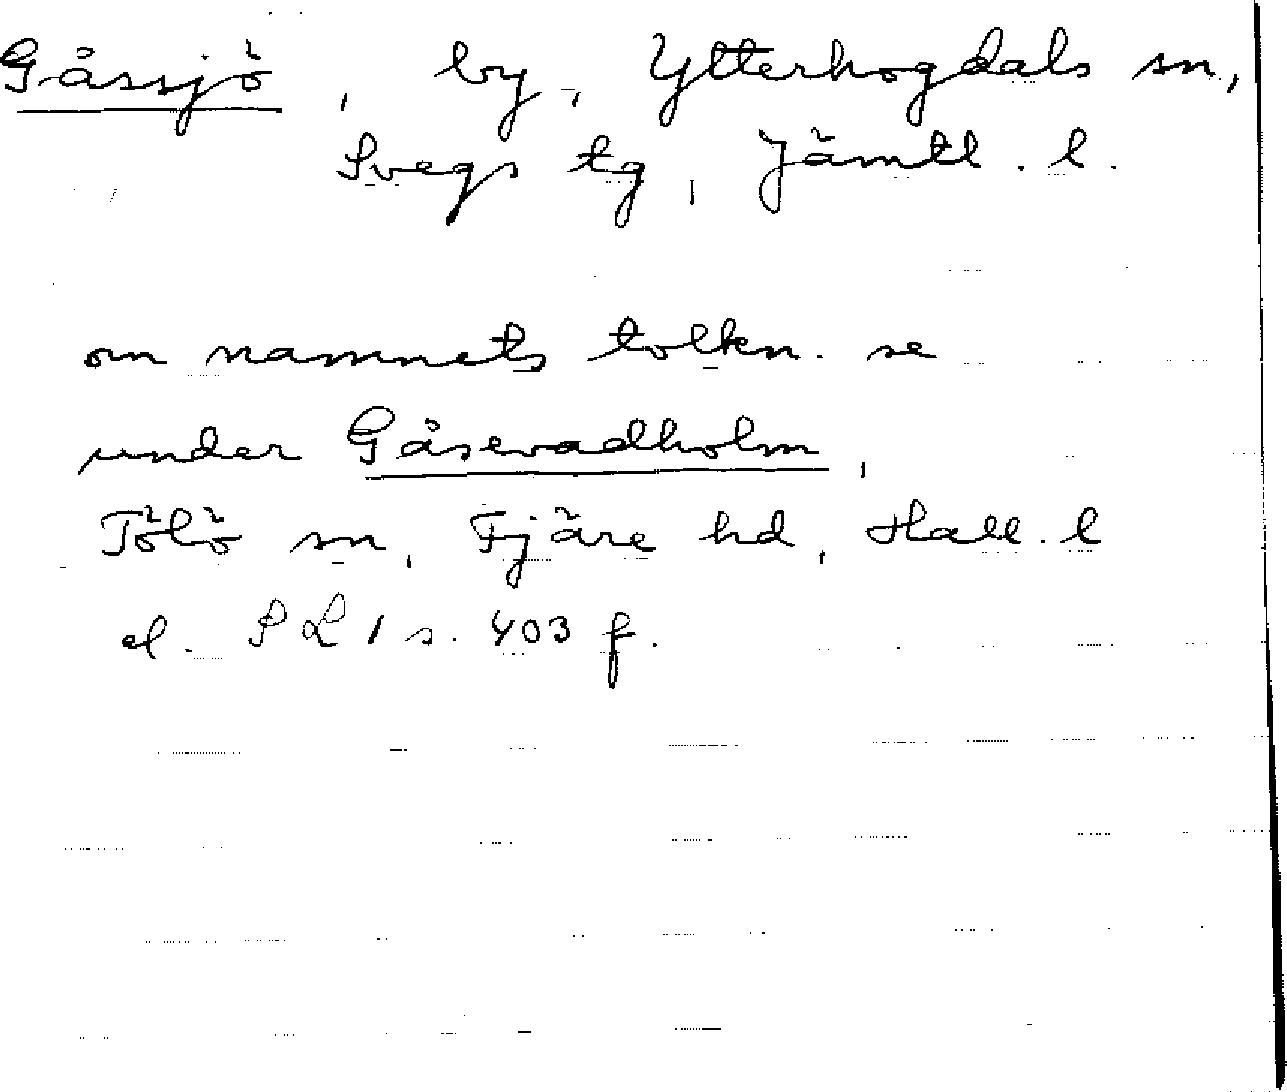 Gåssjö, by, Ytterhogdals sn,
Svegs tg, Jämtl. l.
om namnets tolkn. se
under Gåsevadholm,
Tölö sn, Fjäre hd, Hall. l
el. SL 1 s. 403 f.